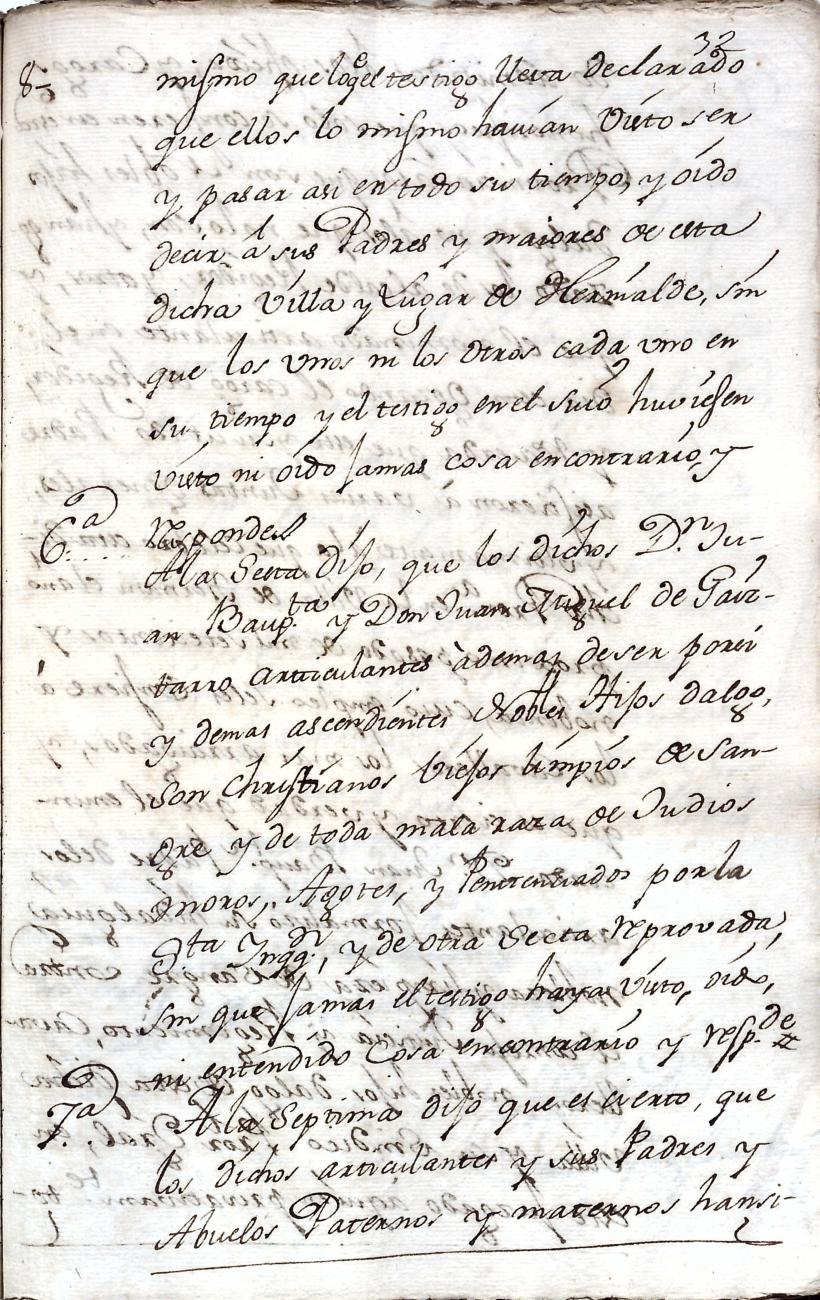 32
8-, mismo que loq.e el testigo lleva declarado
que ellos lo mismo havian visto ser
y pasar asi en todo su tiempo, y oido
decir â sus Padres y maiores de esta
dicha Villa y Lugar de Hernialde, sin
que los unos ni los otros cada uno en
su tiempo y el testigo en el suio huviesen
visto ni oido Jamas cosa en contrario, y
responde//
6.a .... A la Sexta dijo, que los dichos D.n Ju-
an Baup.ta y Don Juan Miguel de Gaiz-
tarro articulantes àdemas de ser por si
y demas ascendientes Nobles Hijos dalgo,
son Christianos viejos limpios de san-
gre y de toda mala raza de Judios
moros, Agotes, y Penitenciados por la
S.ta Ynqq.on, y de otra Secta reprovada,
sin que Jamas el testigo haya visto, oido,
ni entendido Cosa en contrario y resp.de //
7.a . A la Septima dijo que es cierto, que
los dichos articulantes y sus Padres y
Abuelos Paternos y maternos han si-